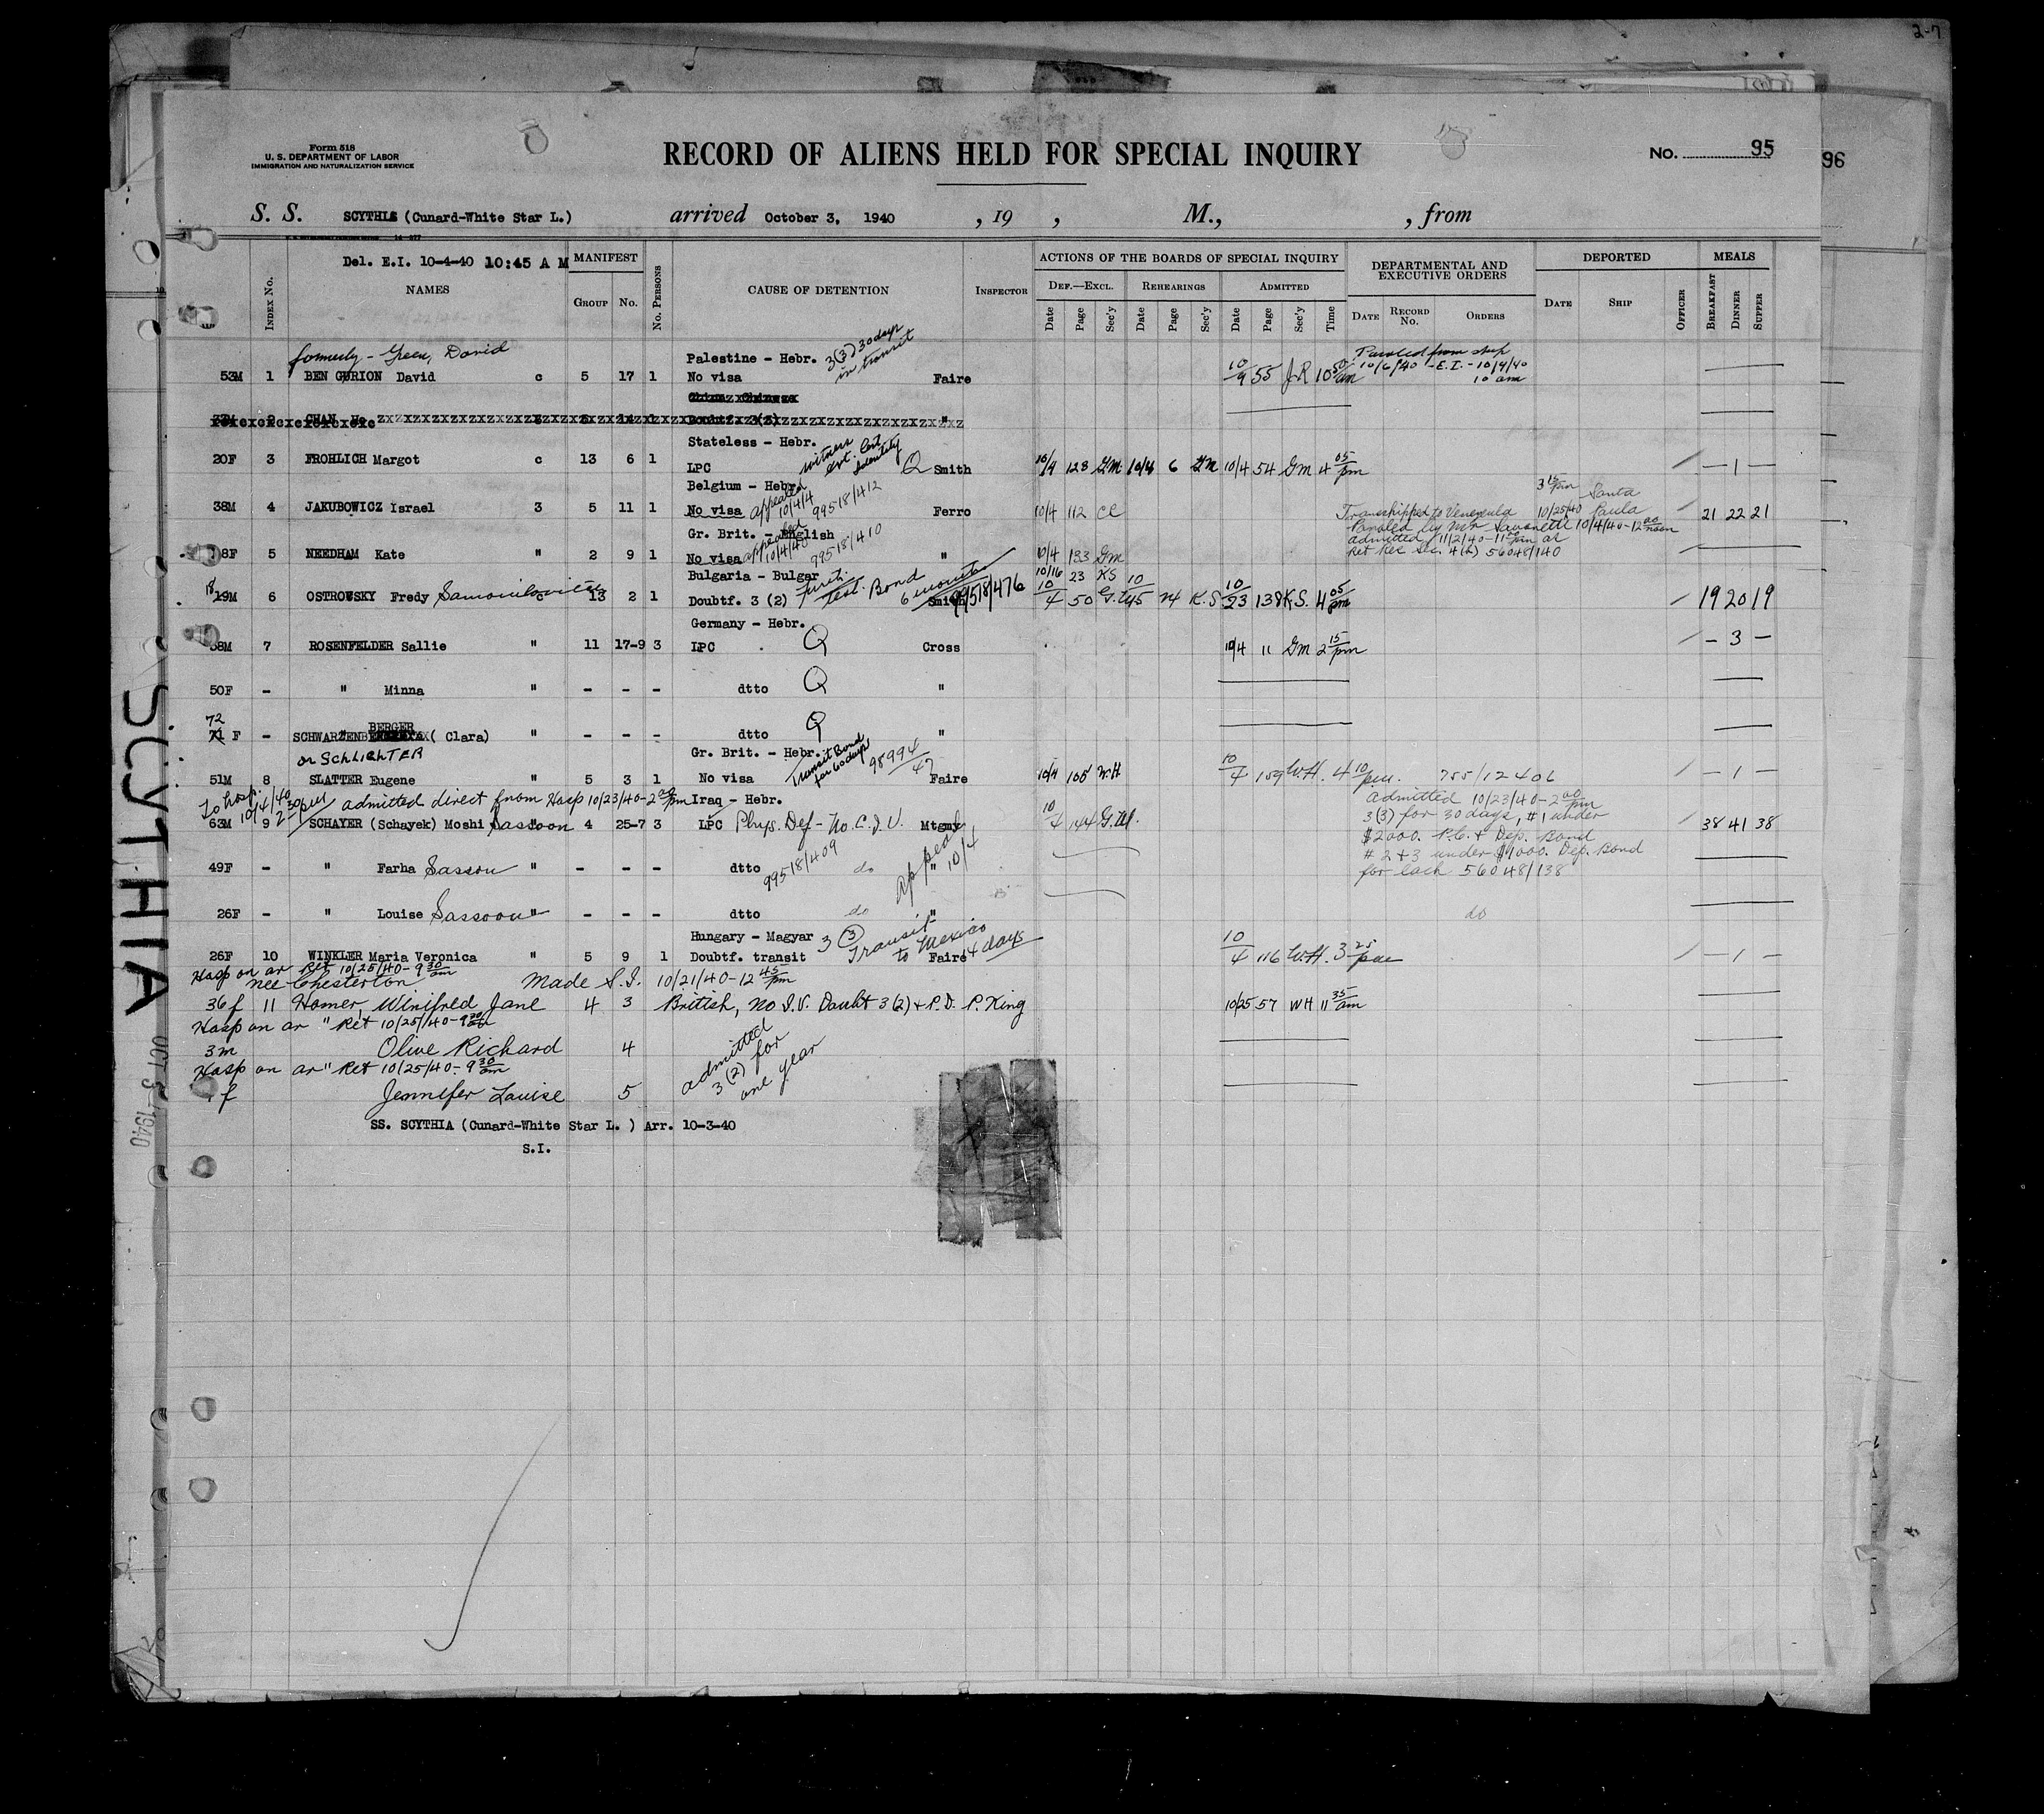 2-7
Form 518
U. S. DEPARTMENT OF LABOR
IMMIGRATION AND NATURALIZATION SERVICE
RECORD OF ALIENS HELD FOR SPECIAL INQUIRY
No. 95
96
S. S. SCYTHIA (Cunard-White Star L.) arrived October 3, 1940 , 19 , M., , from
Del. E.I. 10-4-40 10:45 A M
MANIFEST
ACTIONS OF THE BOARDS OF SPECIAL INQUIRY
DEPARTMENTAL AND EXECUTIVE ORDERS
DEPORTED
MEALS
Index No.
NAMES
Group No.
No. Persons
CAUSE OF DETENTION
Inspector
Def.—Excl. Rehearings Admitted
Date Page Sec'y Date Page Sec'y Date Page Sec'y Time
Date Record No. Orders
Date Ship Officer
Breakfast Dinner Supper
formerly - Green, David
Palestine - Hebr. 3(3) 30 days in transit
Paroled from ship
53M 1 BEN GURION David c 5 17 1 No visa Faire 10/9 55 J.R 10 50 am 10/6/40 - E.I. - 10/9/40 10 am
2 CHAN 14 1 Doubtf. 3(3) "
Stateless - Hebr. witness ext. Cert. Identity
20F 3 FROHLICH Margot c 13 6 1 LPC Q Smith 10/4 128 GM 10/4 6 GM 10/4 54 GM 4 05 pm — 1 —
Belgium - Hebr. appealed 10/4/4 99518/412
38M 4 JAKUBOWICZ Israel 3 5 11 1 No visa Ferro 10/4 112 CC Transhipped to Venezuela 3 15 pm 10/25/40 Santa Paula 21 22 21
Gr. Brit. - English appealed 10/4/40 99518/410
Paroled by 10/4/40-12 00 noon
admitted 11/2/40-11 am
8F 5 NEEDHAM Kate " 2 9 1 No visa " 10/4 133 GM 56048/140
Bulgaria - Bulgar 10/16 23 KS
19M 6 OSTROWSKY Fredy Samouilovitch c 13 2 1 Doubtf. 3 (2) Test. Bond 6 months Smith 99518/476 10/4 50 10/23 138 K.S. 4 05 pm 19 20 19
Germany - Hebr.
58M 7 ROSENFELDER Sallie " 11 17-9 3 LPC Q Cross 10/4 11 GM 2 15 pm — 3 —
50F - " Minna " - - - dtto Q "
72
71 F - SCHWARZENBERGER ( Clara) " - - - dtto Q "
or SCHLICHTER
Gr. Brit. - Hebr. Transit Bond for 60 days 98994/47
51M 8 SLATTER Eugene " 5 3 1 No visa Faire 10/4 105 WH 10/4 159 W.H. 4 10 pm. 755/12406 — 1 —
To hosp. 10/4/40 2 30 pm admitted direct from Hosp 10/23/40-2 00 pm Iraq - Hebr.
63M 9 SCHAYER (Schayek) Moshi Sassoon " 4 25-7 3 LPC Phys. Def - No. C.I.V. Mtgmy 10/4 144 G.M. 38 41 38
admitted 10/23/40-2 00 pm
3(3) for 30 days, #1 under
$2000. P.C. + Dep. Bond
# 2+3 under $1000. Dep. Bond
for each 56048/138
49F - " Farha Sasson " - - - dtto 99518/409 do appeal " 10/4
26F - " Louise Sassoon " - - - dtto do " do
Hungary - Magyar 3 (3) Transit to Mexico 14 days
26F 10 WINKLER Maria Veronica " 5 9 1 Doubtf. transit Faire 10/4 116 W.H. 3 25 pm — 1 —
Hosp on ar Ret 10/25/40-9 30 am
nee Chesterton Made S.I. 10/21/40-12 45 pm
36 f 11 Homer, Winifred Jane 4 3 British, No I.V. Doubt 3(2) + P.D. P. King 10/25 57 WH 11 35 am
Hosp on ar " Ret 10/25/40-9 30 am
3m Olive Richard 4
Hosp on ar " Ret 10/25/40-9 30 am
f Jennifer Louise 5
admitted 3(2) for one year
SS. SCYTHIA (Cunard-White Star L. ) Arr. 10-3-40
S.I.
SCYTHIA
OCT 3-1940